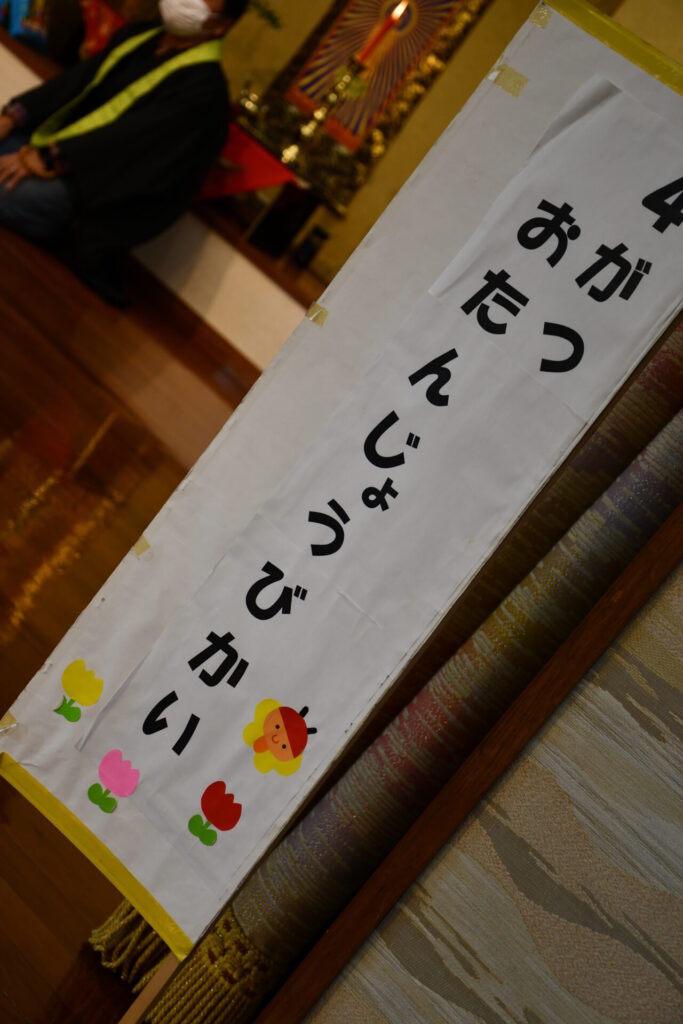 4がつ
おたんじょうびかい